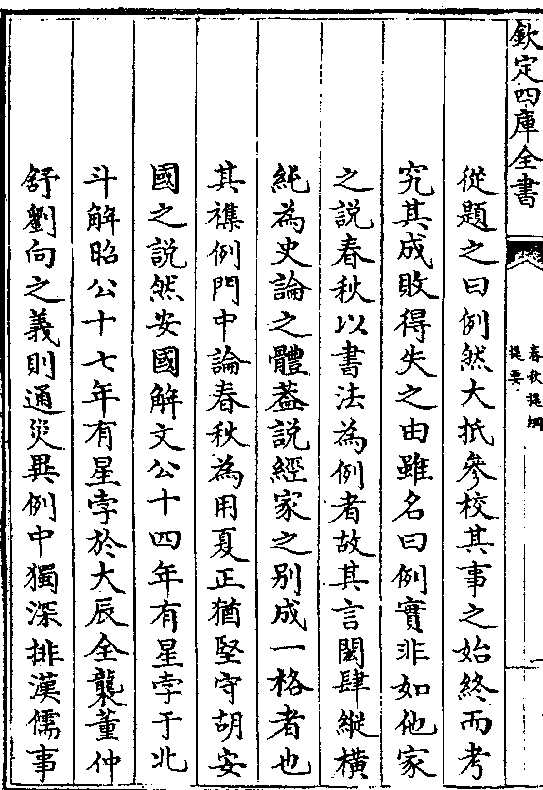 欽定四庫全書
春秋提綱
提要
從題之曰例然大抵參校其事之始終而考
究其成敗得失之由雖名曰例實非如他家
之説春秋以書法為例者故其言閎肆縱横
純為史論之體葢説經家之别成一格者也
其襍例門中論春秋為用夏正猶堅守胡安
國之説然安國解文公十四年有星孛于北
斗解昭公十七年有星孛於大辰全襲董仲
舒劉向之義則通災異例中獨深排漢儒事